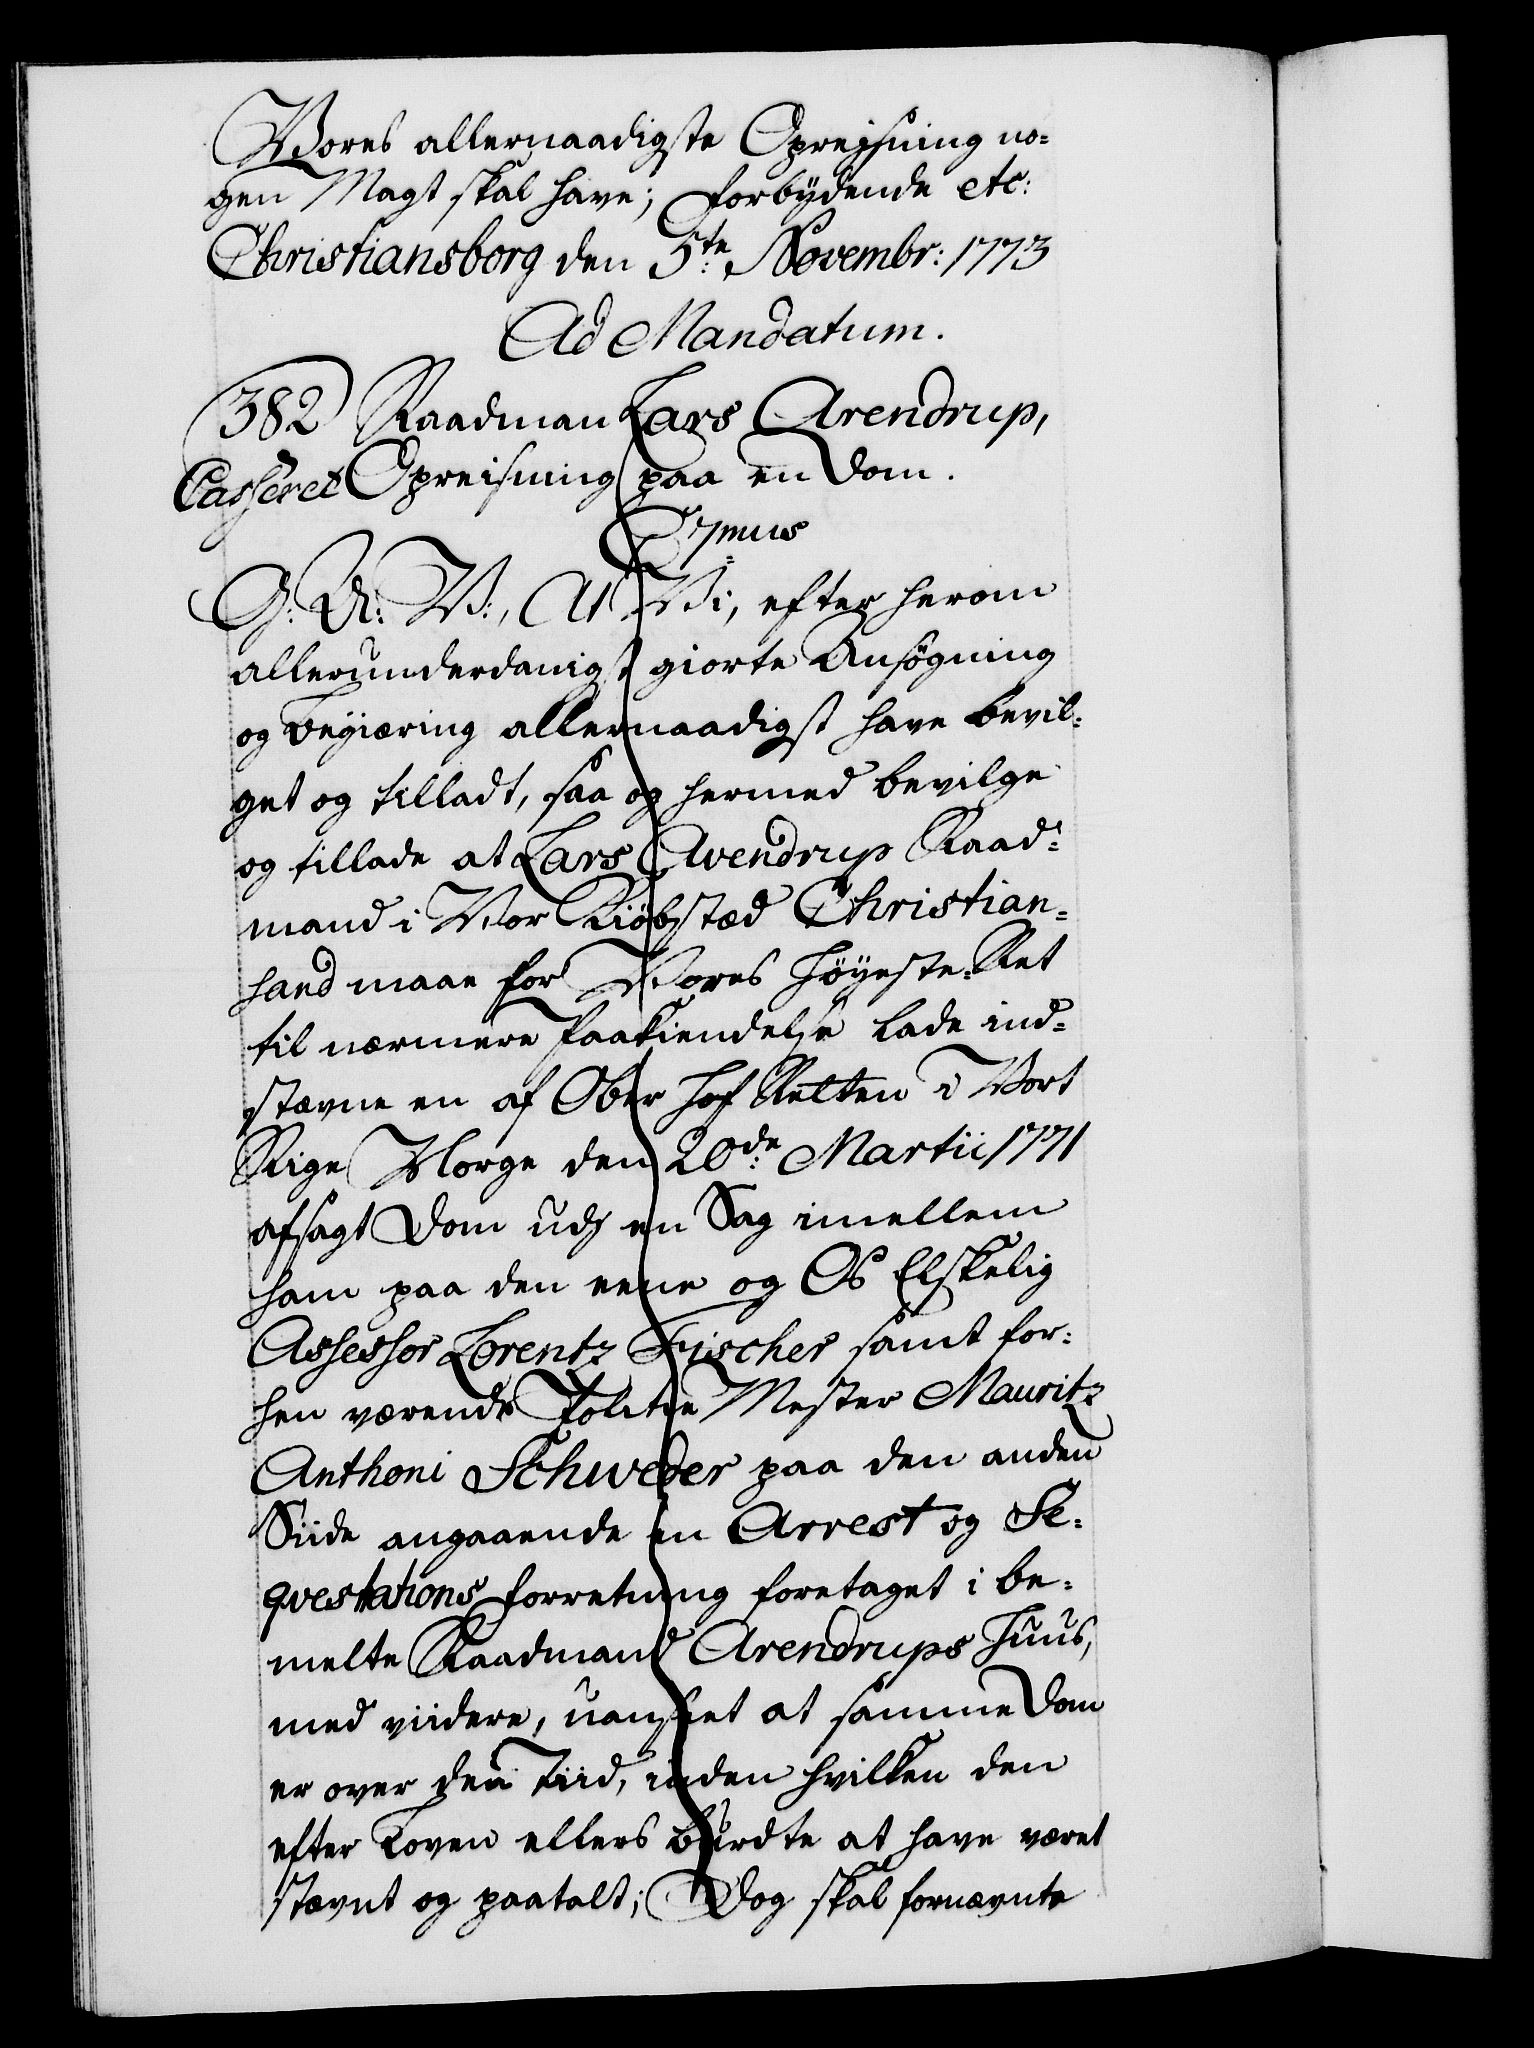 Vores allernaadigste Opreisning no-
gen Magt skal have; forbydende etc:
Christiansborg den 5te Novembr: 1773
Ad Mandatum.
382 Raadman Lars Arendrup,
Casseret Opreisning paa en Dom.
G: A: V:, At Vi, efter herom
allerunderdanigst giorte Ansøgning
og Begiæring allernaadigst have bevil-
get og tilladt, saa og hermed bevilge
og tillade at Lars Arendrup Raad-
mand i Vor Kiøbstæd Christian-
sand maae for Vores Høyeste-Ret
til nærmere Paakiendelse lade ind-
stævne en af Ober Hof Retten i Vort
Rige Norge den 20de Martii 1771
afsagt Dom udj en Sag imellem
ham paa den eene og Os Elskelig
Assessor Lorentz Fischer samt for-
hen værende Politie Mester Mauritz
Anthoni Schweder paa den anden
Siide angaaende en Arrest og Se-
qvestrations Forretning foretaget i be-
melte Raadmand Arendrups Huus,
med viidere, uanseet at samme Dom
er over den Tiid, inden hvilken den
efter Loven ellers burdte at have været
stævnt og paatalt; Dog skal fornævnte